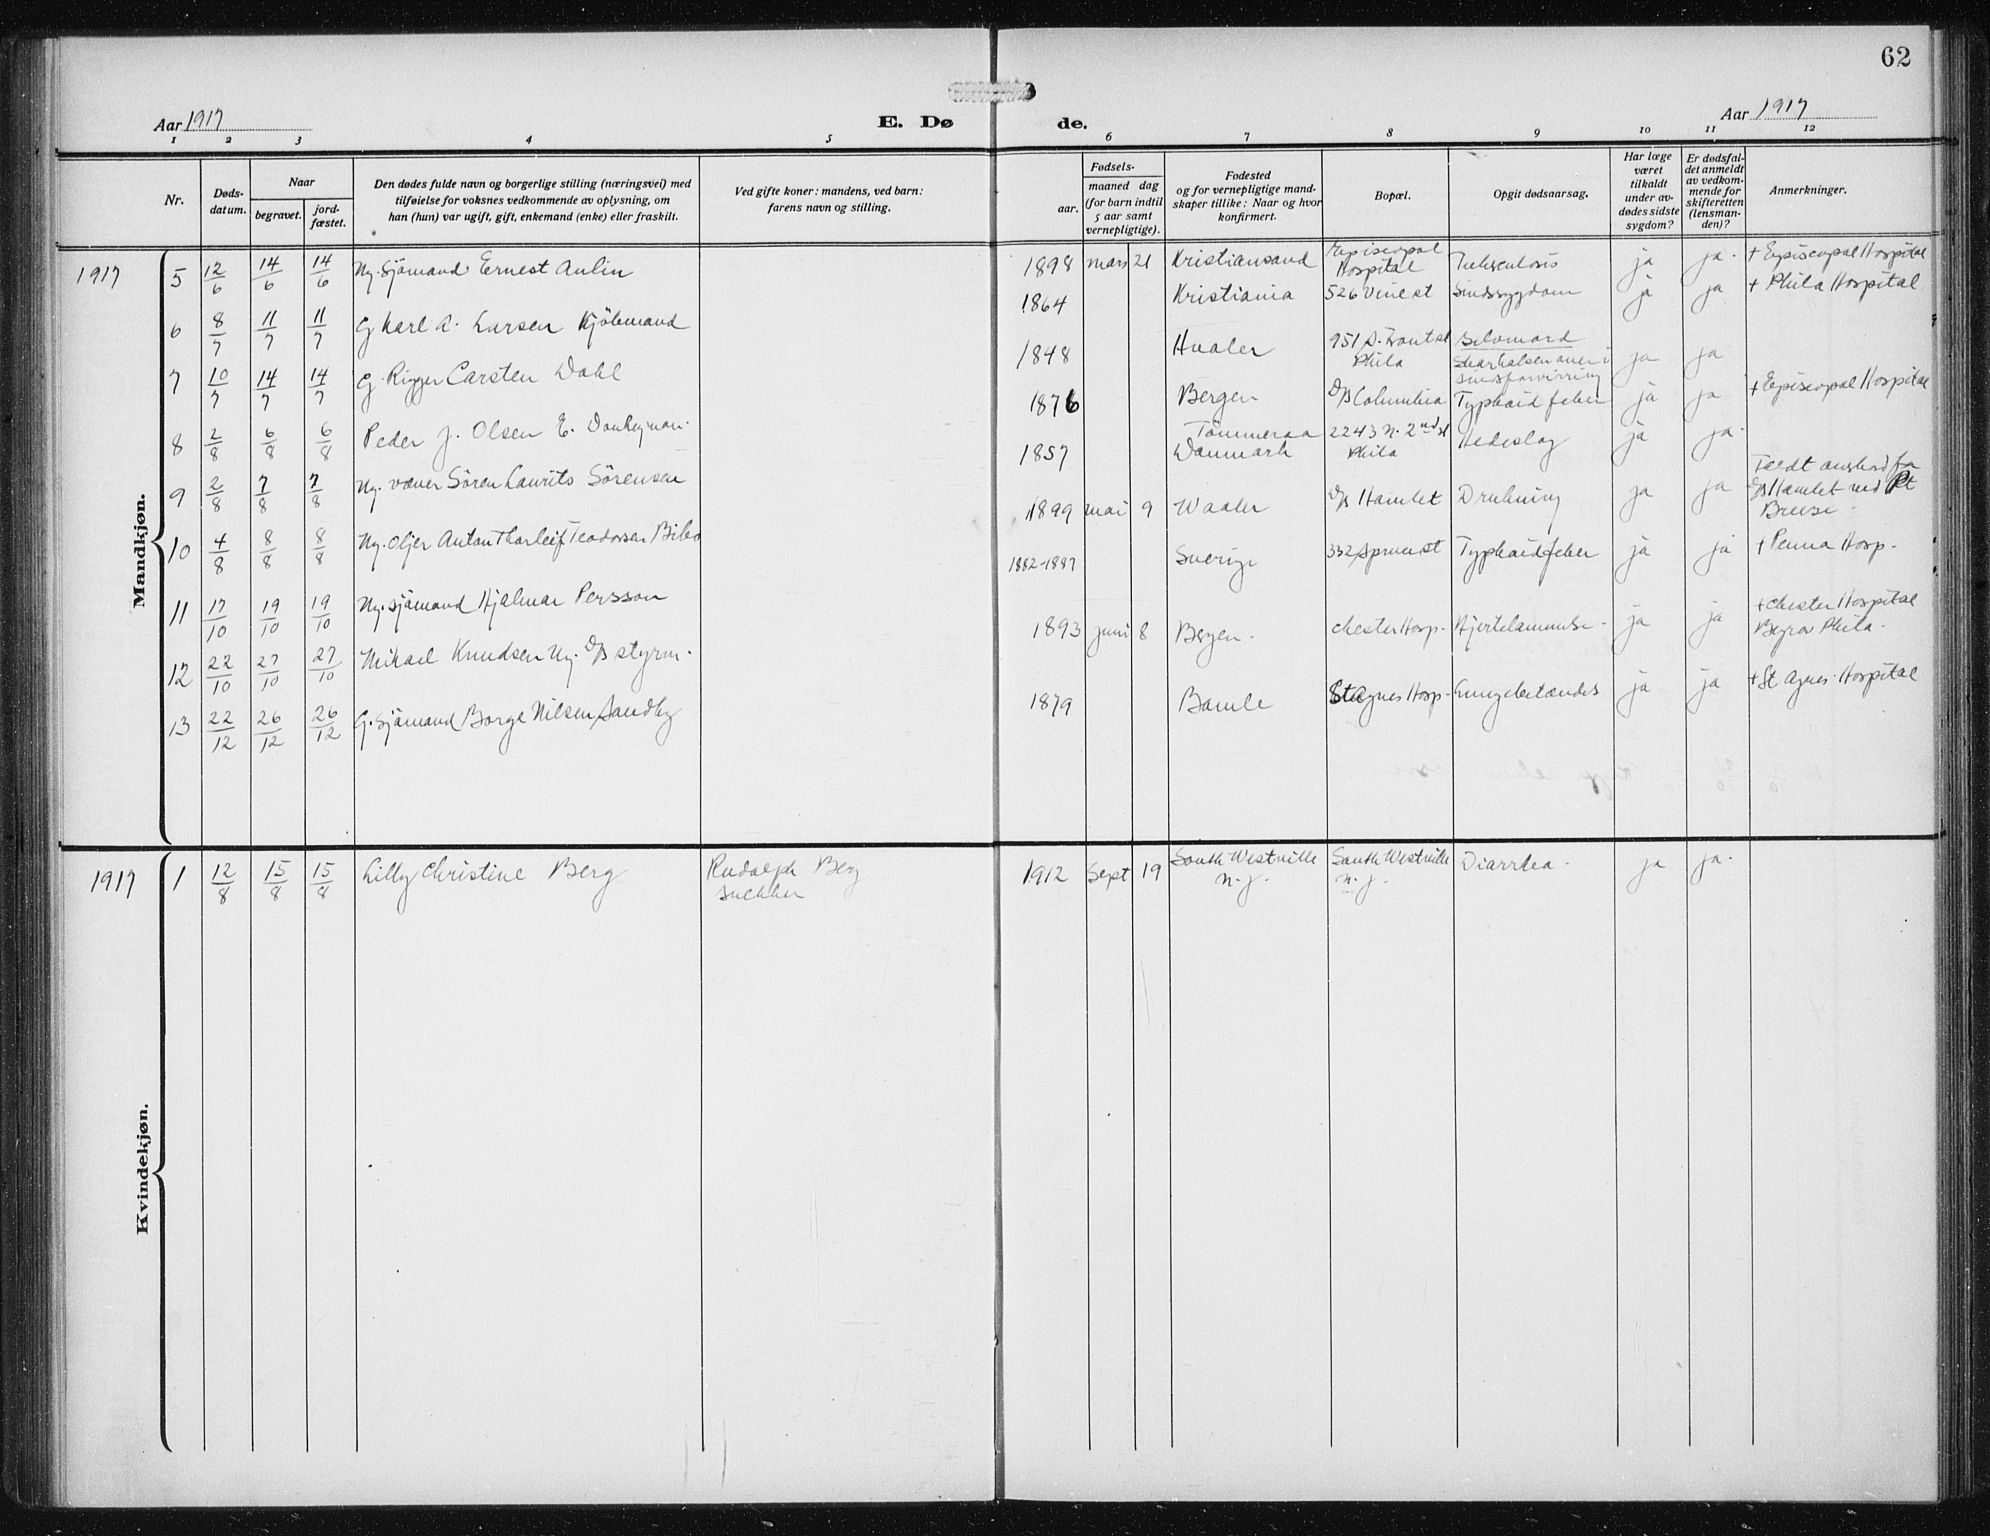 62
Aar 1917
E. Døde.
Aar 1917
1 2 3 4 5 6 7 8 9 10 11 12
Nr.
Døds-
datum.
Naar
begravet.
jord-
fæstet.
Den dødes fulde navn og borgerlige stilling (næringsvei) med
tilføielse for voksnes vedkommende av oplysning, om
han (hun) var ugift, gift, enkemand (enke) eller fraskilt.
Ved gifte koner: mandens, ved barn:
farens navn og stilling.
Fødsels-
aar.
maaned dag
(for barn indtil
5 aar samt
vernepligtige).
Fødested
og for vernepligtige mand-
skaper tillike: Naar og hvor
konfirmert.
Bopæl.
Opgit dødsaarsag.
Har læge
været
tilkaldt
under av-
dødes sidste
sygdom?
Er dødsfal-
det anmeldt
av vedkom-
mende for
skifteretten
(lensman-
den)?
Anmerkninger.
Mandkjøn.
1917 5 12/6 14/6 14/6 Ug. Sjömand Ernest Aulin 1898 mars 21 Kristiansand Episcopal Hospital Tuberculosis ja ja. + Episcopal Hospital
6 8/7 11/7 11/7 G Karl A. Larsen Kjöbmand 1864 Kristiania 526 Vine st Sindssygdom ja ja + Phila Hospital
7 10/7 14/7 14/7 G. Rigger Carsten Dahl 1848 Hvaler 951 S. Front st Phila Selvmord Skar halsen over i sindsforvirring ja ja
8 2/8 6/8 6/8 Peder J. Olsen E. Donkeyman. 1876 Bergen D/S Columbia Typhoid feber ja ja + Episcopal Hospital
9 2/8 7/8 7/8 Ug. væver Sören Laurits Sörensen 1857 Tömmeraa Danmark 2243 N. 2nd st Phila Hedeslag ja ja.
10 4/8 8/8 8/8 Ug. Oljer Anton Thorleif Teodorsen 1899 mai 9 Vaaler D/S Hamlet Drukning ja ja Faldt overbord fra D/S Hamlet ved Pt Breese.
11 17/10 19/10 19/10 Ug. sjömand Hjalmar Persson 1882-1887 Sverige 332 Spruce st Typhoidfeber ja ja + Penna Hosp.
12 22/10 27/10 27/10 Mikael Knudsen Ug. D/S styrm. 1893 juni 8 Bergen. Chester Hosp. Hjertelammelse. ja ja + Chester Hospital Begrov Phila.
13 22/12 26/12 26/12 G. Sjömand Borge Nilsen Sandby 1879 Bamle St Agnes Hosp. ja ja + St Agnes Hospital
Kvindekjøn.
1917 1 12/8 15/8 15/8 Lilly Christine Berg Rudolph Berg snekker 1912 Sept 19 South Westville N. J. South Westville N. J. Diarrhea. ja ja.